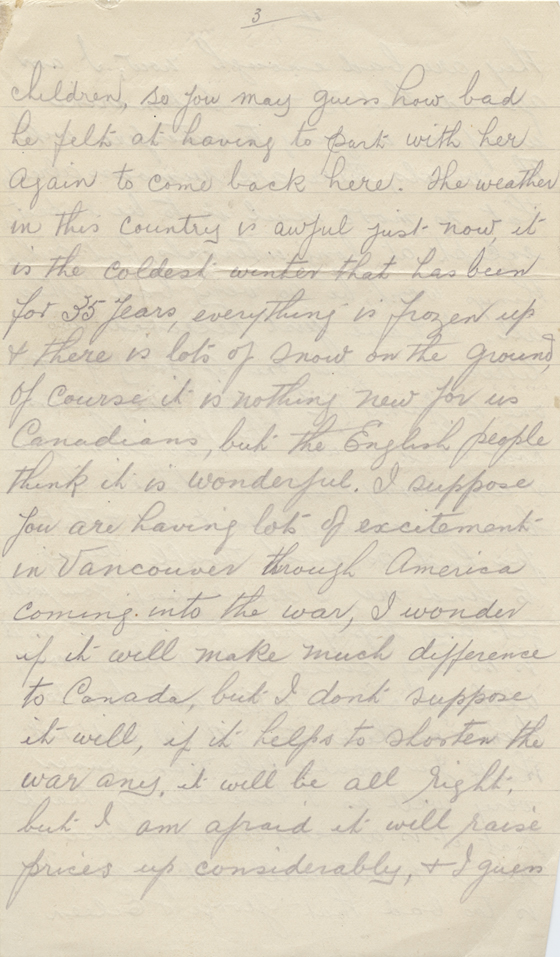 3
children, so you may guess how bad
he felt at having to part with her
again to come back here. The weather
in this country is awful just now, it
is the coldest winter that has been
for 35 years, everything is frozen up
& there is lots of snow on the ground,
of course it is nothing new for us
Canadians, but the English people
think it is wonderful. I suppose
you are having lots of excitement
in Vancouver through America
coming into the war, I wonder
if it will make much difference
to Canada, but I dont suppose
it will, if it helps to shorten the
war any, it will be all right,
but I am afraid it will raise
prices up considerably, & I guess